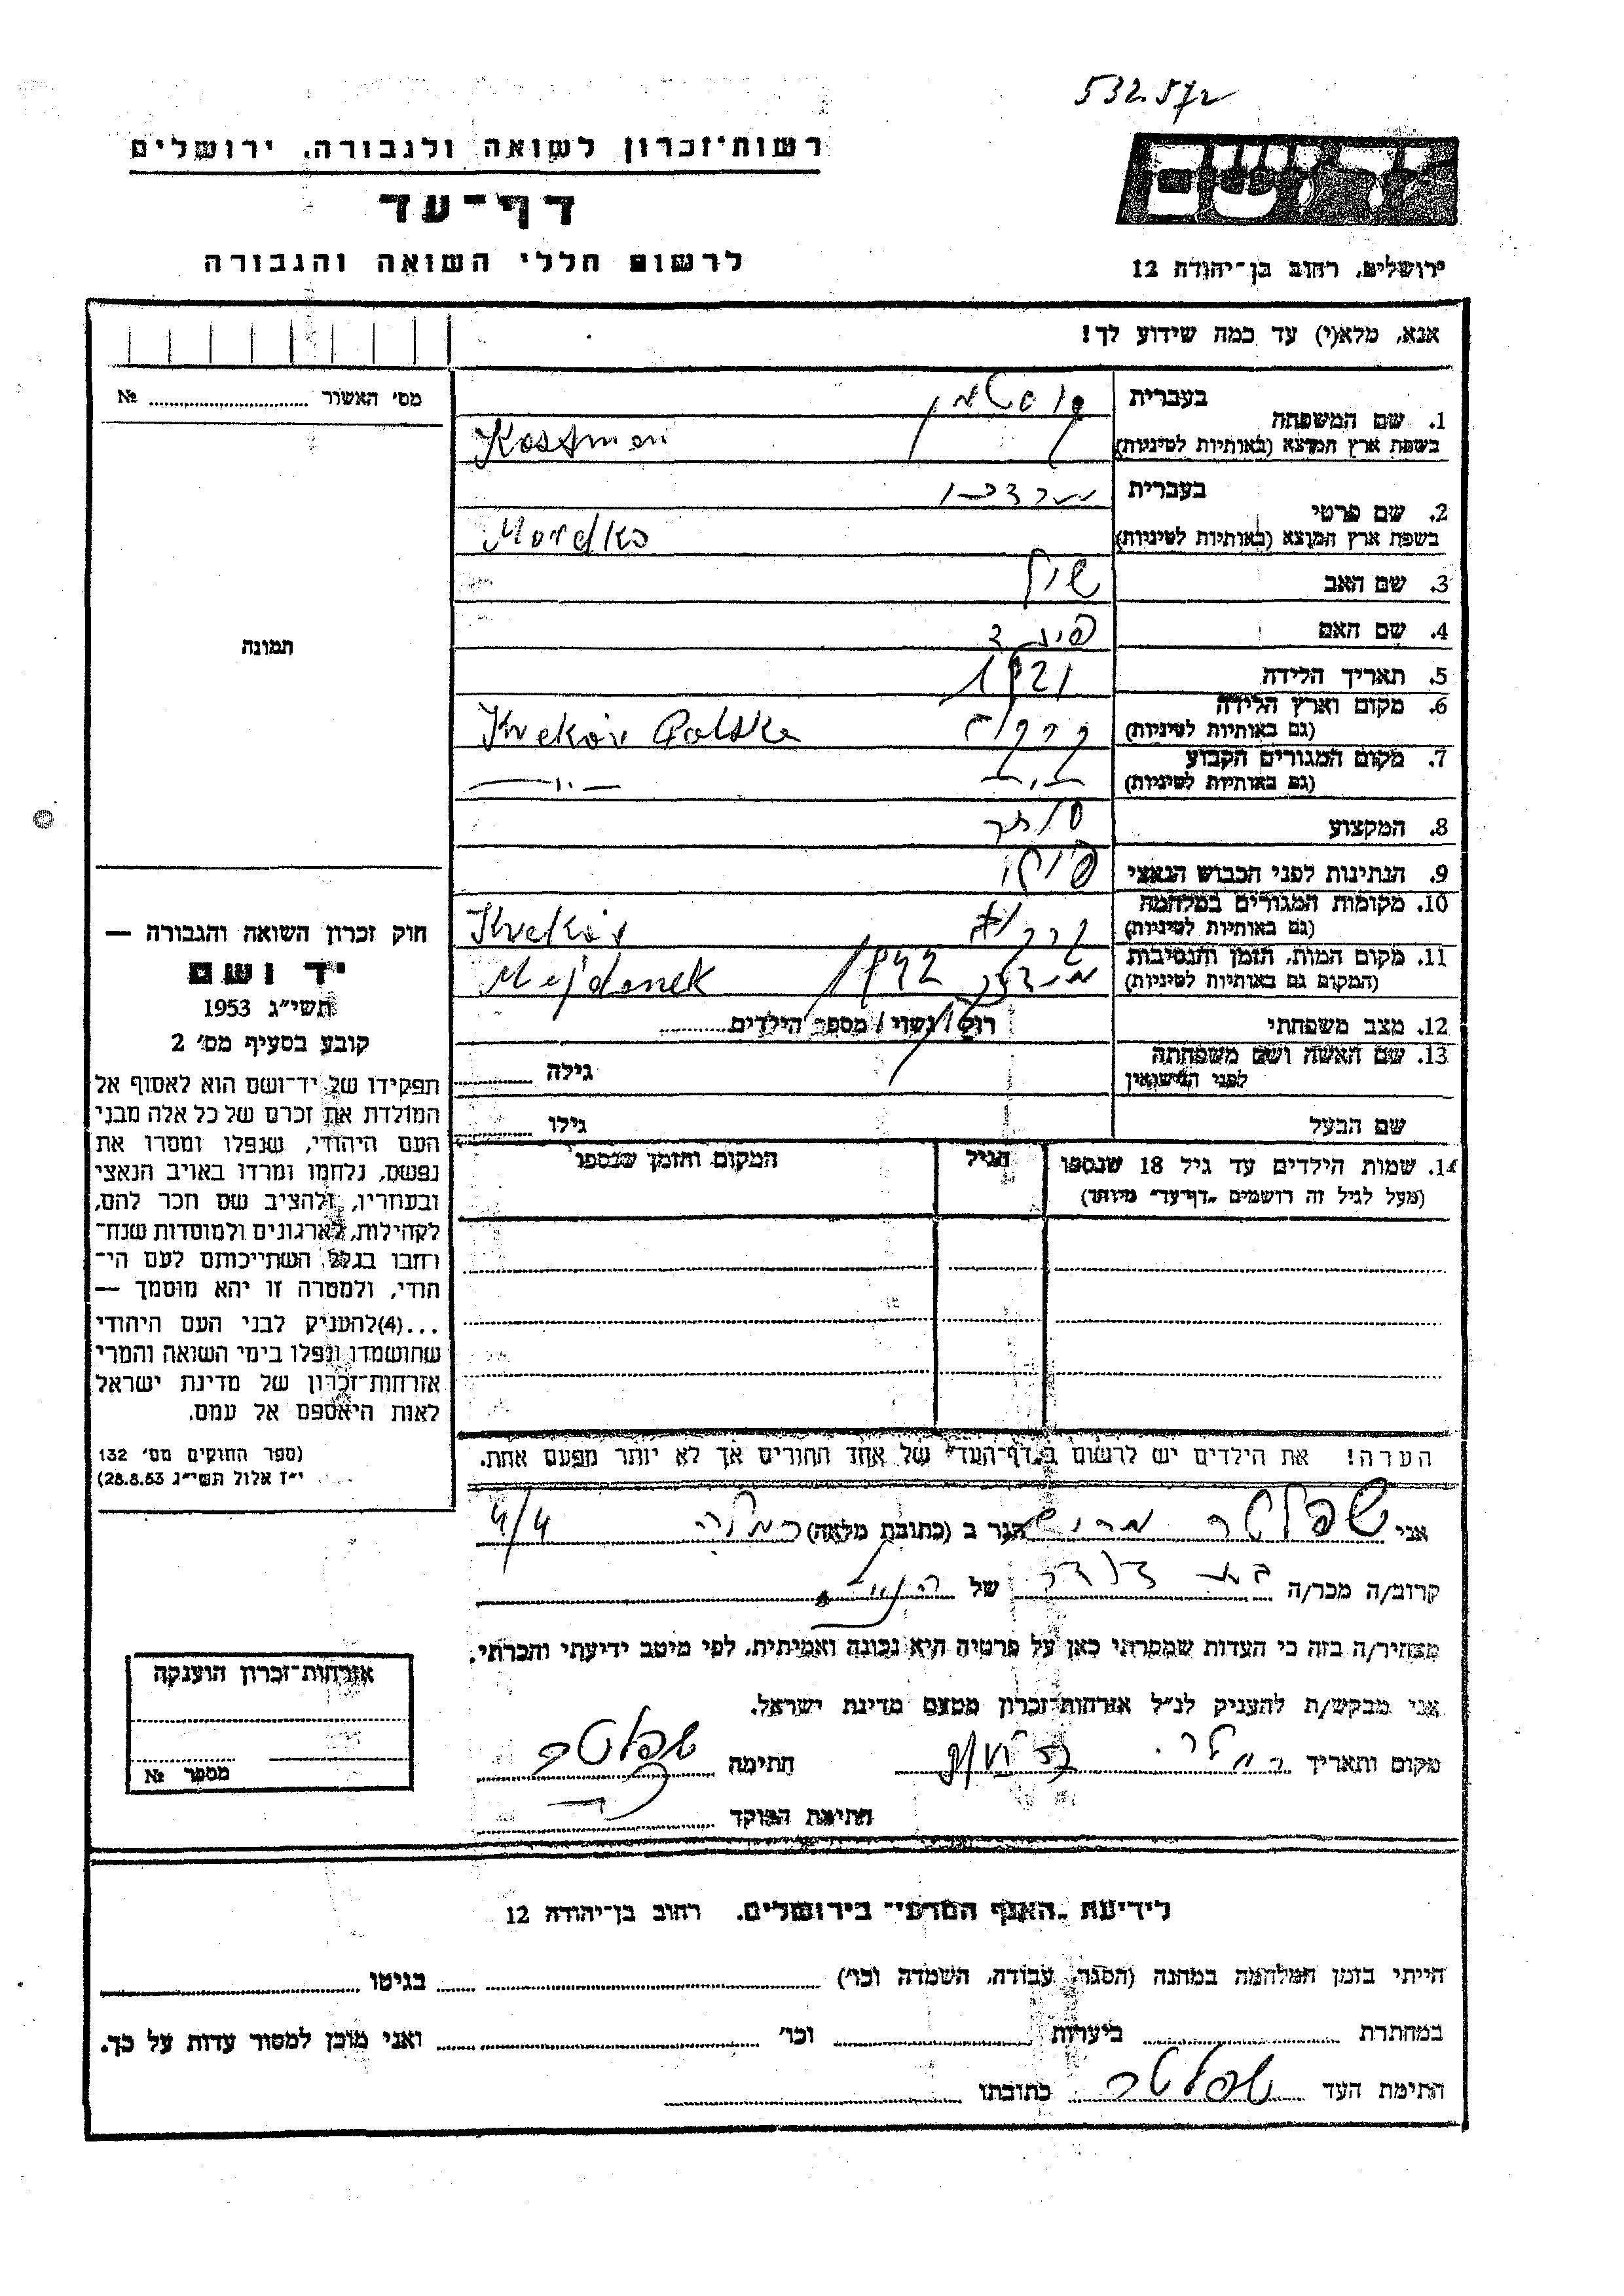 532572
יד ושם
רשות־זכרון לשואה ולגבורה, ירושלים
דף־עד
לרשום חללי השואה והגבורה
ירושלים, רחוב בן־יהודה 12
אנא, מלא(י) עד כמה שידוע לך!
מס׳ האשור № 
תמונה
1. שם המשפחה בעברית קוסטמן
בשפת ארץ המוצא (באותיות לטיניות) Kostman
2. שם פרטי בעברית מרדכי
בשפת ארץ המוצא (באותיות לטיניות) Mordko
3. שם האב
4. שם האם
5. תאריך הלידה 1921
6. מקום וארץ הלידה קרקוב Krakóv Polska
(גם באותיות לטיניות)
7. מקום המגורים הקבוע —״— —״—
(גם באותיות לטיניות)
8. המקצוע סוחר
9. הנתינות לפני הכבוש הנאצי פולני
10. מקומות המגורים במלחמה קרקוב Krakóv
(גם באותיות לטיניות)
11. מקום המות, הזמן והנסיבות 1942 Majdanek
(המקום גם באותיות לטיניות)
12. מצב משפחתי רווק / נשוי / מספר הילדים
13. שם האשה ושם משפחתה גילה
לפני הנישואין
שם הבעל גילו
14. שמות הילדים עד גיל 18 שנספו הגיל המקום והזמן שנספו
(מעל לגיל זה רושמים „דף־עד״ מיוחד)
הערה! את הילדים יש לרשום ב„דף־העד״ של אחד ההורים אך לא יותר מפעם אחת.
חוק זכרון השואה והגבורה —
יד ושם
תשי״ג 1953
קובע בסעיף מס׳ 2
תפקידו של יד־ושם הוא לאסוף אל
המולדת את זכרם של כל אלה מבני
העם היהודי, שנפלו ומסרו את
נפשם, נלחמו ומרדו באויב הנאצי
ובעוזריו, ולהציב שם וזכר להם,
לקהילות, לארגונים ולמוסדות שנח־
רבו בגלל השתייכותם לעם הי־
הודי, ולמטרה זו יהא מוסמך —
...(4)להעניק לבני העם היהודי
שהושמדו ונפלו בימי השואה והמרי
אזרחות־זכרון של מדינת ישראל
לאות היאספם אל עמם.
(ספר החוקים מס׳ 132
י״ז אלול תשי״ג 28.8.53)
אני שפלטר הגר ב (כתובת מלאה) רמלה 4/4
קרוב/ה מכר/ה בת דודה של
מצהיר/ה בזה כי העדות שמסרתי כאן על פרטיה היא נכונה ואמיתית, לפי מיטב ידיעתי והכרתי.
אני מבקש/ת להעניק לנ״ל אזרחות־זכרון מטעם מדינת ישראל.
מקום ותאריך חתימה שפלטר
חתימת הפוקד
אזרחות־זכרון הוענקה
מספר №
לידיעת „האגף המדעי״ בירושלים, רחוב בן־יהודה 12
הייתי בזמן המלחמה במחנה (הסגר, עבודה, השמדה וכו׳) בגיטו
במחתרת ביערות וכו׳ ואני מוכן למסור עדות על כך.
חתימת העד שפלטר כתובתו